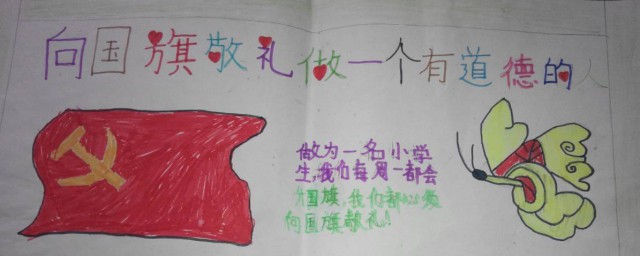 向国旗敬礼做一个有道德的人
做为一名小学
生,我们每周一都会
国旗,我们都必须
向国旗敬礼!